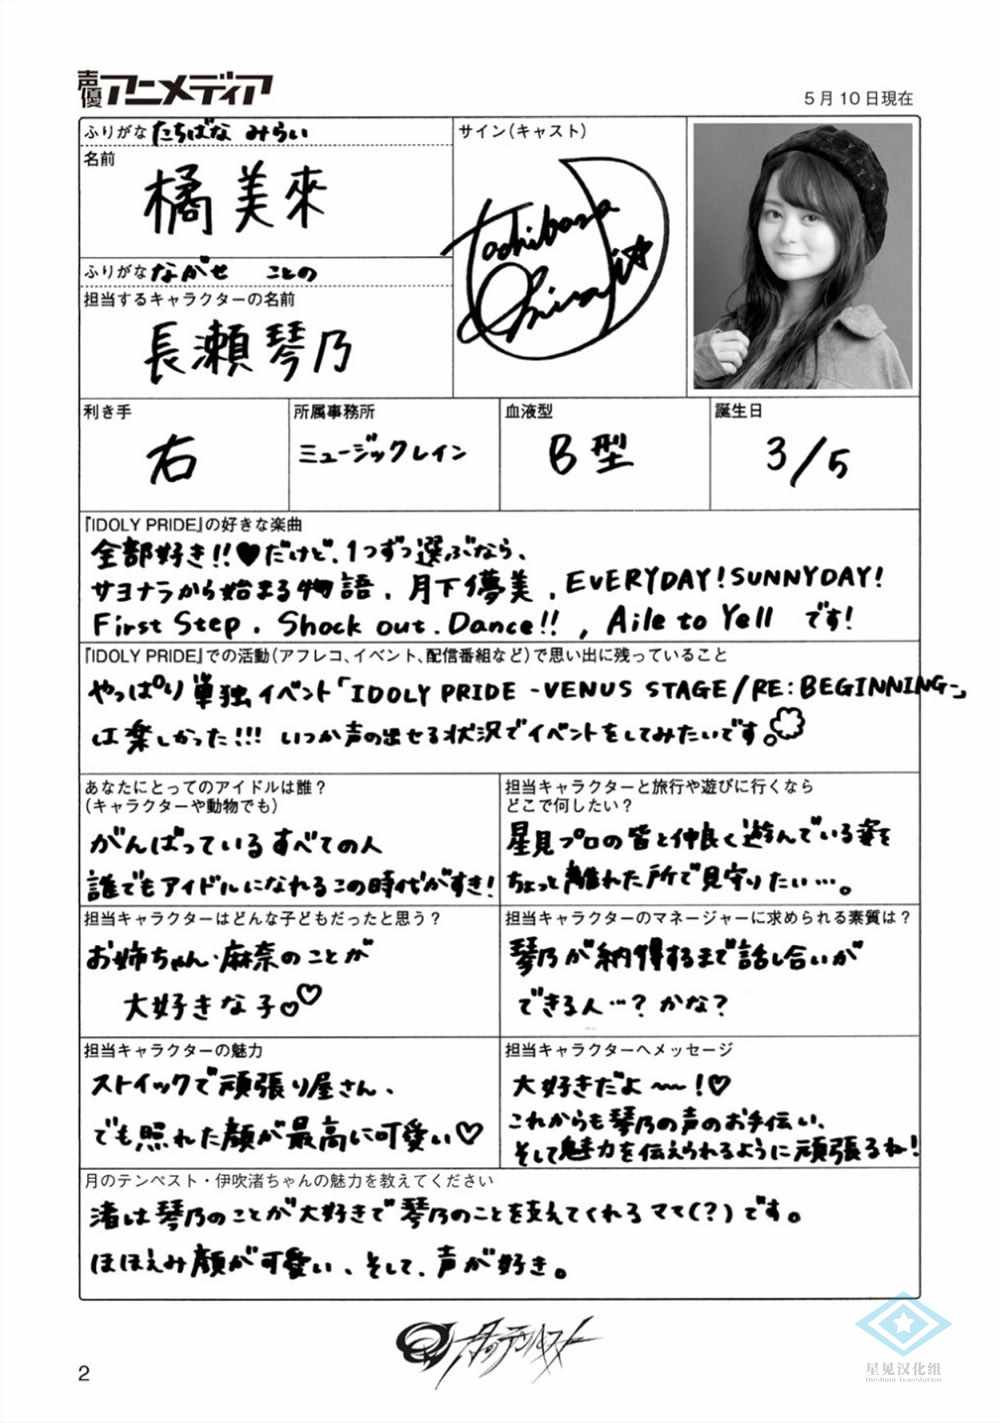 声優アニメディア
5月10日現在
ふりがな たちばな みらい
名前
橘 美來
サイン(キャスト)
Tachibana
Mirai
ふりがな ながせ ことの
担当するキャラクターの名前
長瀬琴乃
利き手
右
所属事務所
ミュージックレイン
血液型
B型
誕生日
3/5
『IDOLY PRIDE』の好きな楽曲
全部好き!!♥だけど、1つずつ選ぶなら、
サヨナラから始まる物語、月下儚美、EVERYDAY!SUNNYDAY!
First Step、Shock out、Dance!!、Aile to Yell です!
『IDOLY PRIDE』での活動(アフレコ、イベント、配信番組など)で思い出に残っていること
やっぱり単独イベント「IDOLY PRIDE -VENUS STAGE/RE:BEGINNING-」
は楽しかった!!! いつか声の出せる状況でイベントをしてみたいです。
あなたにとってのアイドルは誰?
(キャラクターや動物でも)
がんばっているすべての人
誰でもアイドルになれるこの時代がすき!
担当キャラクターと旅行や遊びに行くなら
どこで何したい?
星見プロの皆と仲良く遊んでいる姿を
ちょっと離れた所で見守りたい…。
担当キャラクターはどんな子どもだったと思う?
お姉ちゃん・麻奈のことが
大好きな子♡
担当キャラクターのマネージャーに求められる素質は?
琴乃が納得するまで話し合いが
できる人…?かな?
担当キャラクターの魅力
ストイックで頑張り屋さん、
でも照れた顔が最高に可愛い♡
担当キャラクターへメッセージ
大好きだよ〜!♡
これからも琴乃の声のお手伝い、
そして魅力を伝えられるように頑張るね!
月のテンペスト・伊吹渚ちゃんの魅力を教えてください
渚は琴乃のことが大好きで琴乃のことを支えてくれるママ(?)です。
ほほえみ顔が可愛い、そして、声が好き。
月のテンペスト
2
星见汉化组